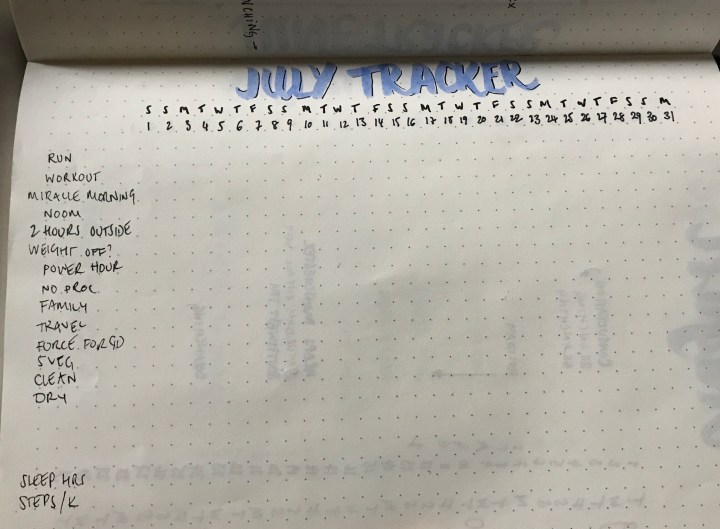 NCHING –
JULY TRACKER
S S M T W T F S S M T W T F S S M T W T F S S M T W T F S S M
1 2 3 4 5 6 7 8 9 10 11 12 13 14 15 16 17 18 19 20 21 22 23 24 25 26 27 28 29 30 31
RUN
WORKOUT
MIRACLE MORNING
NOOM
2 HOURS OUTSIDE
WEIGHT OFF?
POWER HOUR
NO PROC
FAMILY
TRAVEL
FORCE FOR GD
5 VEG
CLEAN
DRY
SLEEP HRS
STEPS/K